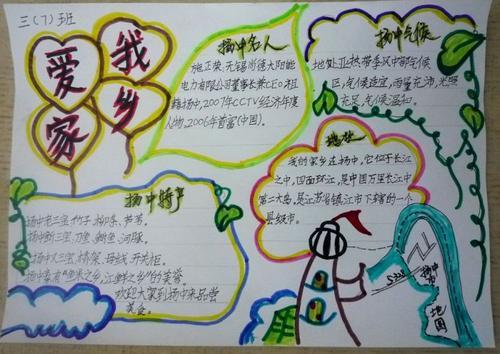 三(7)班
爱我家乡
扬中名人
施正荣,无锡尚德太阳能
电力有限公司董事长兼CEO祖
籍扬中,2007年CCTV经济年度
人物,2006年首富(中国)。
扬中气候
地处亚热带季风中部气候
区,气候适宜,雨量充沛,光照
充足,气候温和。
地址
我的家乡在扬中,它位于长江
之中,四面环江,是中国万里长江中
第二大岛,是江苏省镇江市下辖的一个
县级市。
扬中特产
扬中老三宝:竹子、柳条、芦苇。
扬中新三宝:刀鱼、鮰鱼、河豚。
扬中大三宝:桥架、母线、开关柜。
扬中享有“鱼米之乡,江鲜之乡”的美誉。
欢迎大家到扬中来品尝
美食。
扬中
地图